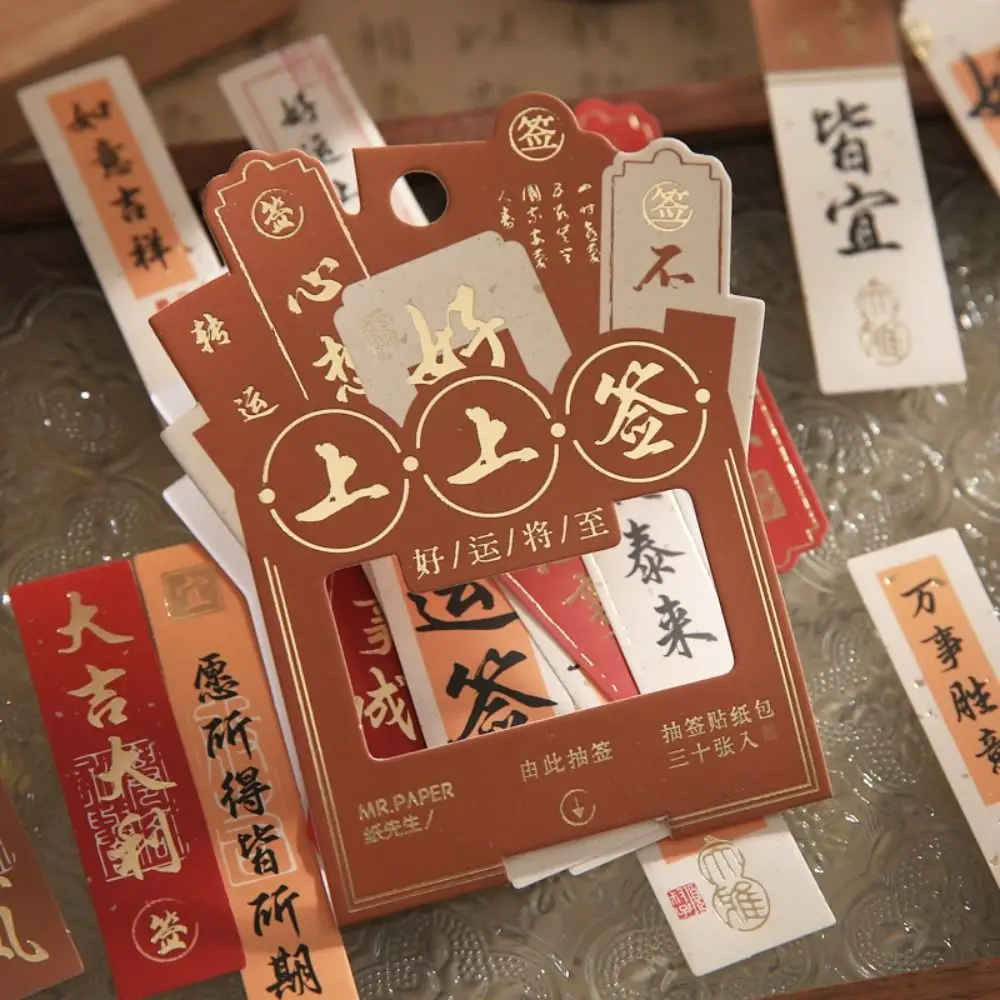 如意吉祥
好运
签
签
签
心想
转运
好
不
皆宜
上上签
好/运/将/至
事成
运签
泰来
大吉大利
签
宜
愿所得皆所期
万事胜意
MR.PAPER
纸先生/
由此抽签
抽签贴纸包
三十张入